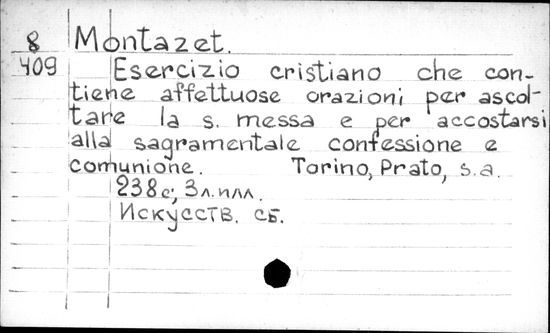 8 Montazet.
409 Esercizio cristiano che con-
tiene affettuose orazioni per ascol-
tare la s. messa e per accostarsi
alla sagramentale confessione e
comunione. Torino, Prato, s.a.
238с; 3л.илл.
Искусств. сб.